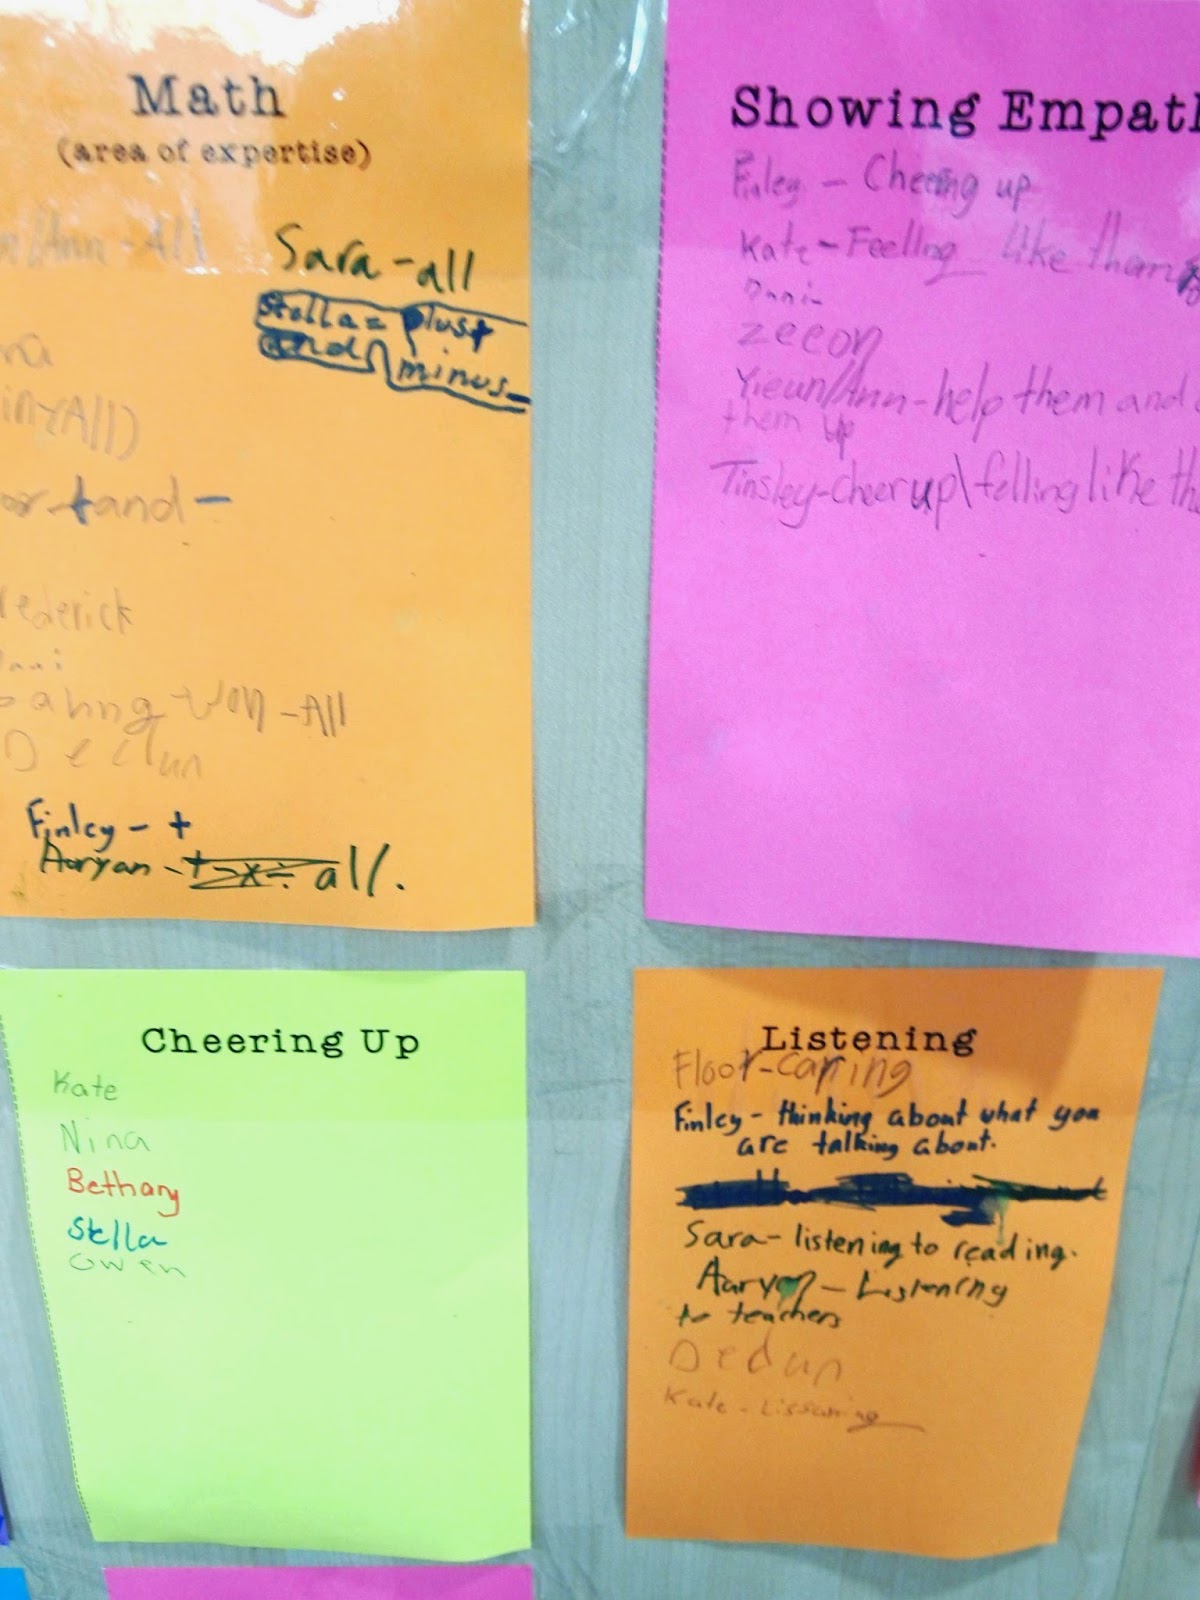 Math
(area of expertise)
Ann - All
Sara - all
Stella = plus +
and minus -
and -
Won - All
Finley - +
Aaryan - + - x ÷ all.
Showing
Finley - Cheering up
Kate - Feellng like them
Danni -
zeeon
Yieun/Ann - help them and
them up
Tinsley - cheer up \ felling like
Cheering Up
Kate
Nina
Bethany
Stella
Owen
Listening
Floor - carring
Finley - thinking about what you
are talking about.
Sara - listening to reading.
Aaryan - Listening
to teachers
Kate -